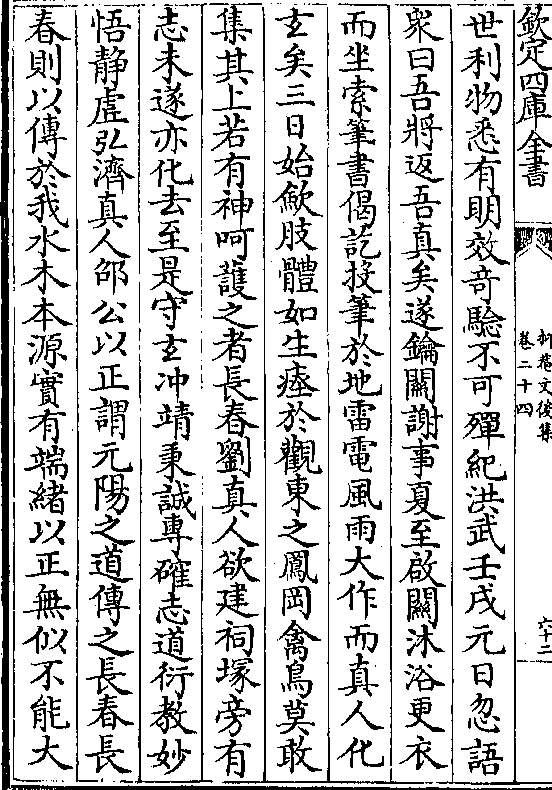 欽定四庫全書
抑菴文後集
卷二十四
六十二
世利物悉有明效奇驗不可殫紀洪武壬戌元日忽語
衆曰吾將返吾真矣遂鑰關謝事夏至啟關沐浴更衣
而坐索筆書偈訖投筆於地雷電風雨大作而真人化
去矣三日始歛肢體如生瘞於觀東之鳳岡禽鳥莫敢
集其上若有神呵䕶之者長春劉真人欲建祠塚旁有
志未遂亦化去至是守玄冲靖秉誠專確志道衍教妙
悟静虛弘濟真人邵公以正謂元陽之道傳之長春長
春則以傳於我水木本源實有端緒以正無似不能大